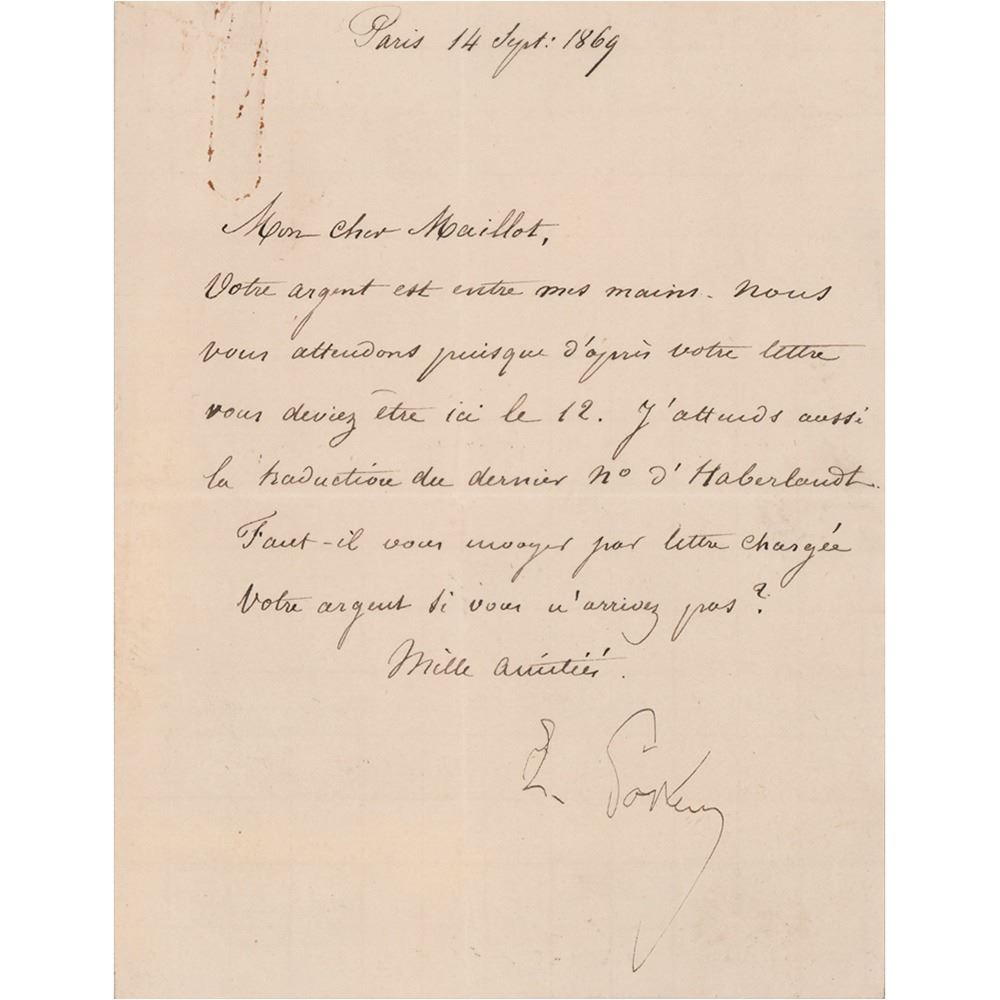 Paris 14 Sept: 1869
Mon cher Maillot,
Votre argent est entre mes mains. Nous
vous attendons puisque d'après votre lettre
vous deviez être ici le 12. J'attends aussi
la traduction du dernier Nº d'Haberlandt.
Faut-il vous envoyer par lettre chargée
votre argent si vous n'arrivez pas?
Mille amitiés.
L. Pasteur